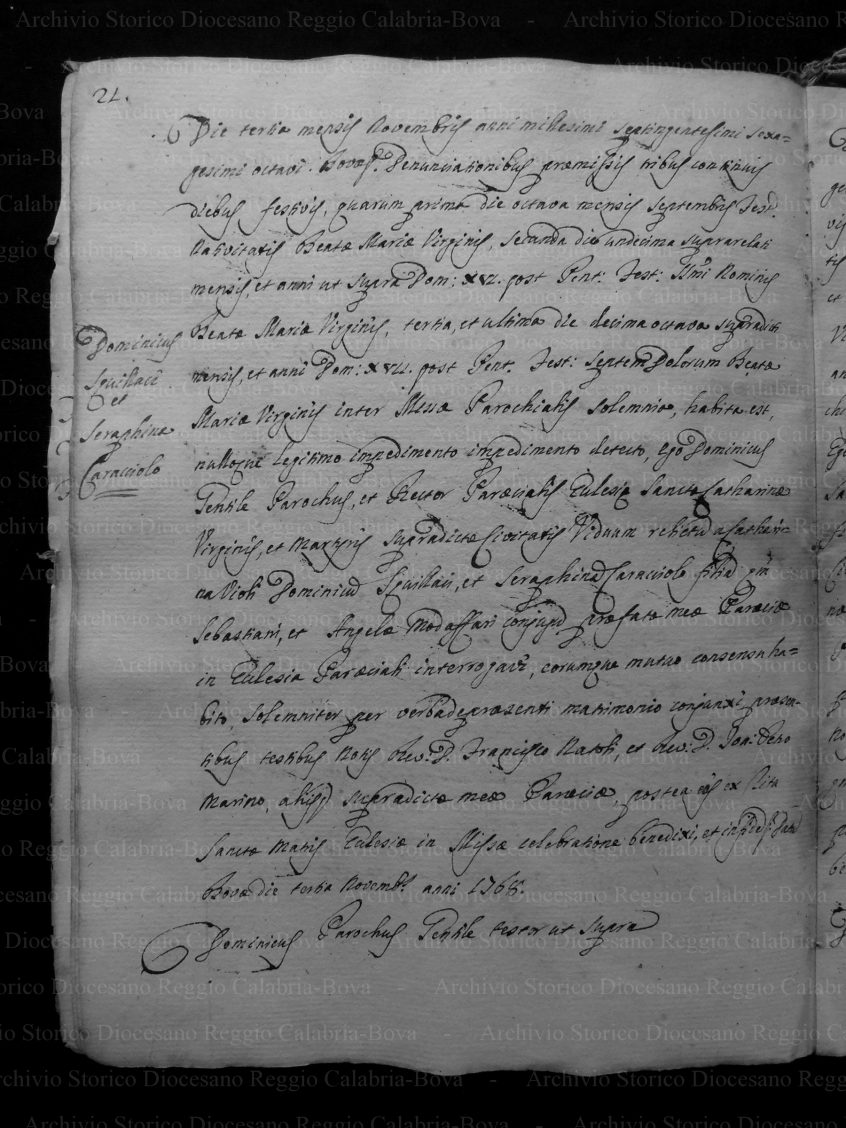 21.
Die tertia mensis Novembris anni millesimi septingentesimi sexa=
gesimi octavi. Denunciationibus præmissis tribus continuis
diebus festivis, quarum prima die octava mensis Septembris Fest.
Nativitatis Beatæ Mariæ Virginis, secunda die undecima suprarelati
mensis, et anni ut supra Dom: XVI. post Pent: Fest: SSmi Nominis
Beatæ Mariæ Virginis, tertia, et ultima die decima octava supradicti
mensis, et anni Dom: XVII. post Pent. Fest: Septem Dolorum Beatæ
Mariæ Virginis inter Missæ Parochialis solemnia, habita est,
nulloque legitimo impedimento impedimento detecto, Ego Dominicus
Gentile Parochus, et Rector Paræcialis Eclesiæ Sanctæ Catharinæ
Virginis, et Martyris supradictæ Civitatis Viduum relictū a Cathari=
na Violi Dominicū Squillaci, et Seraphinā Caracciolo filiā qm
Sebastiani, et Angelæ Modaffari conjugū præfatæ meæ Paræciæ
in Eclesia Paræciali interrogavi, eorumque mutuo consensu ha=
bito, solemniter per verba de præsenti matrimonio conjunxi præsen-
tibus testibus notis Rev. D. Francisco Natoli, et Rev. D. Joa:
Marino, aliisq supradictæ meæ Paræciæ, postea eis ex Ritu
Sanctæ Matris Eclesiæ in Missæ celebratione benedixi, et in
Bovæ die tertia Novembris anni 1768.
Dominicus Parochus Gentile testor ut supra
Dominicus
Squillaci
et
Seraphina
Caracciolo
Archivio Storico Diocesano Reggio Calabria-Bova